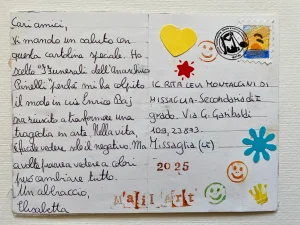 Cari amici,
Vi mando un saluto con
questa cartolina speciale. Ho
scelto "I Funerali dell'Anarchico
Pinelli" perché mi ha colpito
il modo in cui Enrico Baj
sia riuscito a trasformare una
tragedia in arte. Nella vita,
è facile vedere solo il negativo. Ma
a volte provare a vedere a colori
può cambiare tutto.
Un abbraccio,
Elisabetta
IC RITA LEVI MONTALCINI DI
MISSAGLIA - Secondaria di I
grado. Via G. Garibaldi
109, 23873.
Missaglia (LC)
2025
Mail Art